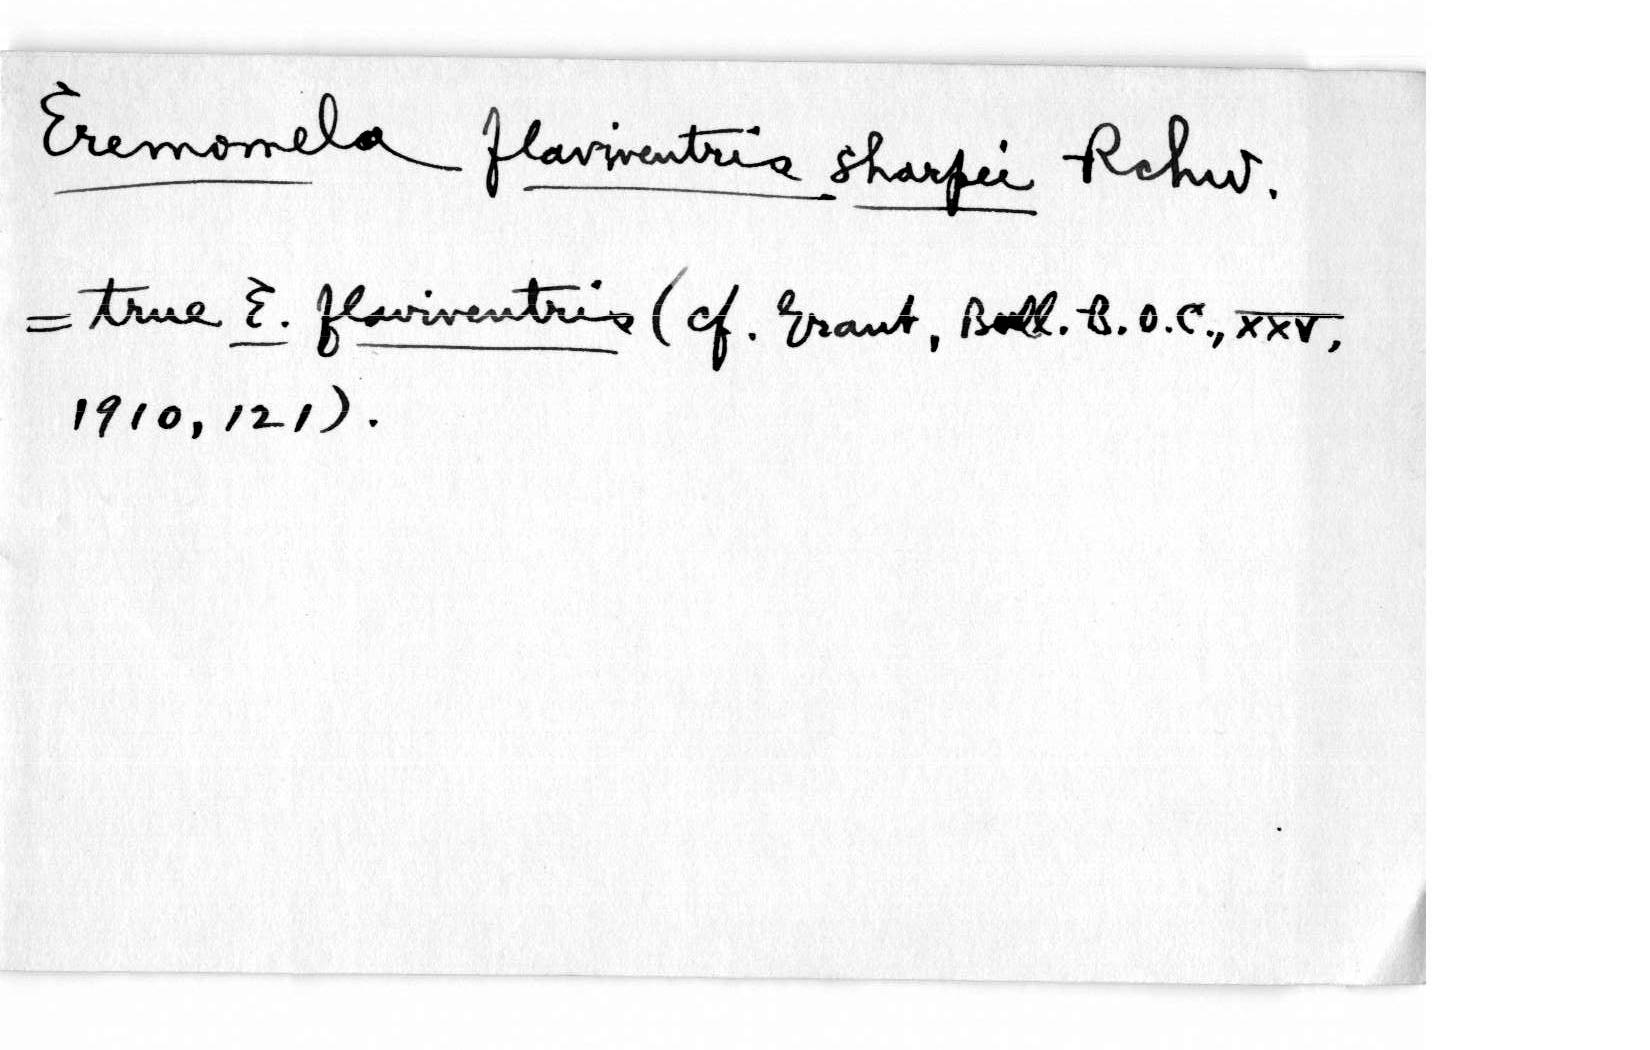 Eremomela flaviventris sharpei Rchw.
= true E. flaviventris (cf. Grant, Bull. B.O.C., XXV,
1910, 121).